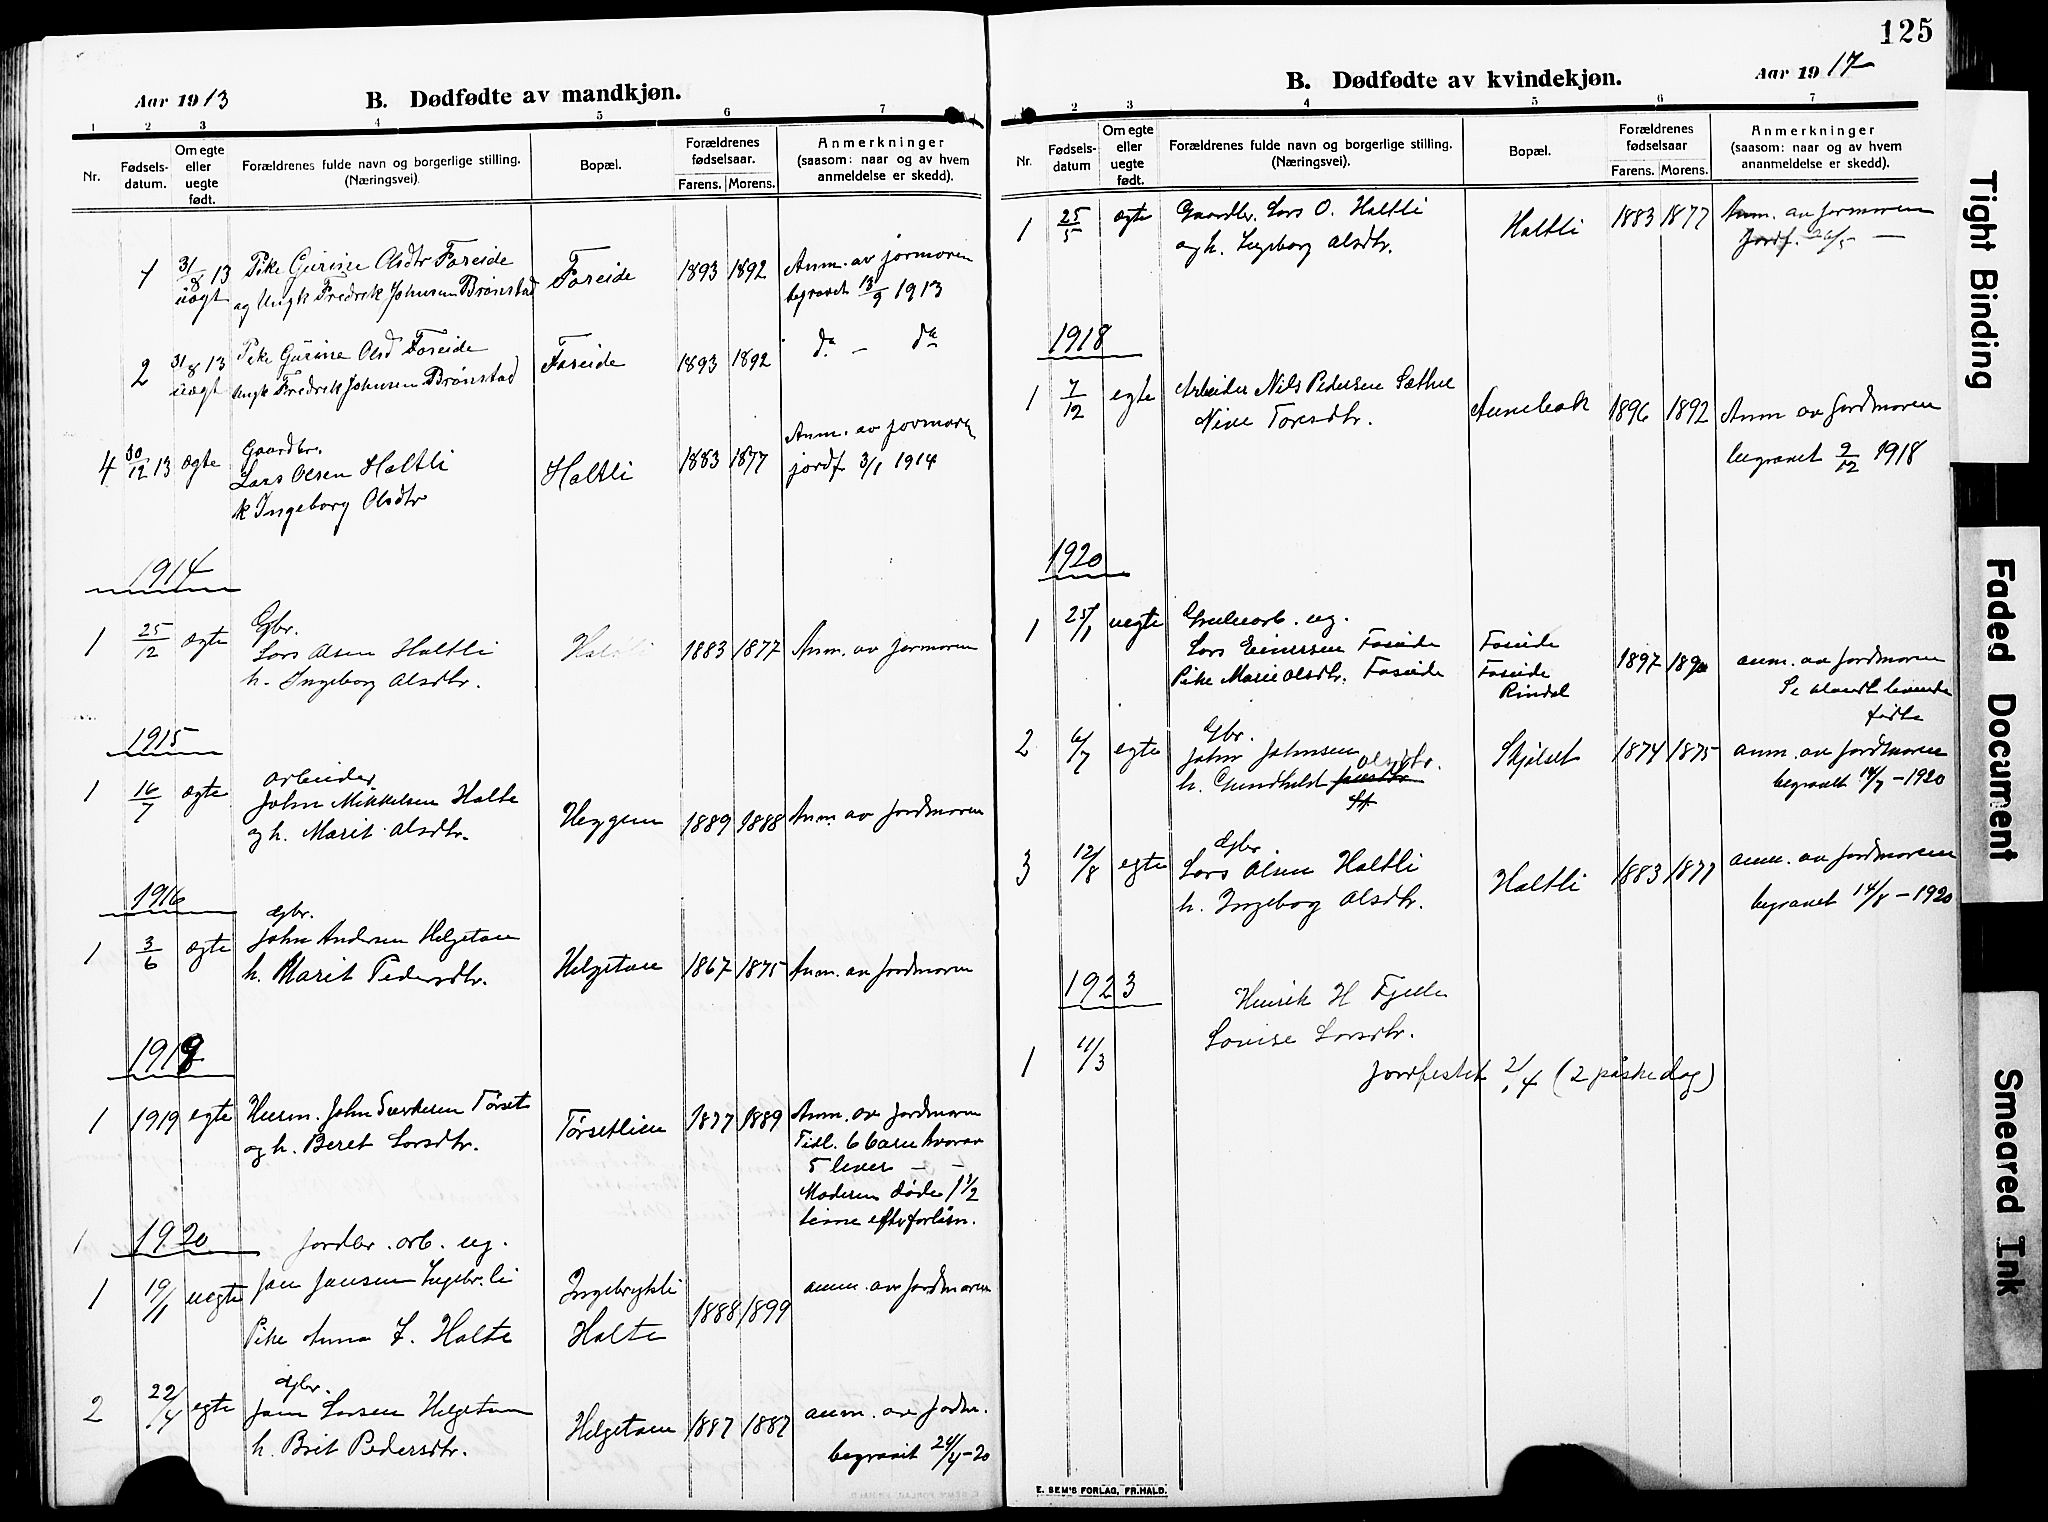 125
Aar 1913
B. Dødfødte av mandkjøn.
1 2 3 4 5 6 7
Nr.
Fødsels-
datum.
Om egte
eller
uegte
født.
Forældrenes fulde navn og borgerlige stilling.
(Næringsvei).
Bopæl.
Forældrenes
fødselsaar.
Farens. Morens.
Anmerkninger
(saasom: naar og av hvem
anmeldelse er skedd).
1 31/8 13 Pike Gurine Olsdtr Foreide Foreide 1893 1892 Anm. av jormoren
uægt og Ungk Fredrek Johnsen Brønstad begravet 13/9 1913
2 31/8 13 Pike Gurine Olsd Foreide Foreide 1893 1892 do – do
uægt Ungk Fredrek Johnsen Brønstad
4 30/12 13 ægte Gaardbr. Anm. av jormoren
Lars Olsen Haltli Haltli 1883 1877 jordf 3/1 1914
k Ingeborg Olsdtr
1914
1 25/12 ægte Gbr.
Lars Olsen Haltli Haltli 1883 1877 Anm. av jormoren
h. Ingeborg Olsdtr.
1915
1 16/7 ægte arbeider
John Mikkelsen Halte Heggem 1889 1888 Anm. av Jordmoren
og h. Marit Olsdtr.
1916
1 3/6 ægte Gbr.
John Andersen Helgetun Helgetun 1867 1875 Anm. av Jordmoren
h. Marit Pedersdtr.
1919
1 1919 egte Husm. John Sverkesen Tørset Tørsetlien 1877 1889 Anm. av Jordmoren
og h. Beret Larsdtr. Tidl. 6 barn hvorav
5 lever – –
Moderen døde 1 1/2
time efter forløsn.
1 1920 Jordbr. arb. ug.
1 19/1 uegte Jon Jonsen Ingebr.li Ingebrigtsli 1888 1899 anm. av Jordmoren
Pike Anna J. Halte Halte
2 22/4 egte Gbr.
John Larsen Helgetun Helgetun 1887 1887 anm. av Jordm.
h. Brit Pedersdtr. begravet 24/4-20
Aar 1917
B. Dødfødte av kvindekjøn.
1 2 3 4 5 6 7
Nr.
Fødsels-
datum
Om egte
eller
uegte
født.
Forældrenes fulde navn og borgerlige stilling.
(Næringsvei).
Bopæl.
Forældrenes
fødselsaar
Farens. Morens.
Anmerkninger
(saasom: naar og av hvem
ananmeldelse er skedd).
1 25/5 ægte Gaardbr. Lars O. Haltli Haltli 1883 1877 Anm. av jormoren
og h. Ingeborg Olsdtr. Jordf. 26/5 –
1918
1 7/12 egte Arbeider Nils Pedersen Sæther 1896 1892 Anm av Jordmoren
Toresdtr. begravet 9/12 1918
1920
1 25/1 uegte Grubearb. ug.
Lars Einersen Foseide Foseide 1897 anm. av Jordmoren
Pike Marie Olsdtr. Foseide Foseide Se blandt levende
Rindal fødte
2 6/7 egte Gbr.
John Johnsen Skjølset 1874 1875 anm. av Jordmoren
h. Gundhild Olsdtr. begravet 14/7-1920
3 12/8 egte Gbr.
Lars Olsen Haltli Haltli 1883 1877 anm. av Jordmoren
h. Ingebog Olsdtr. begravet 14/8-1920
1923
Henrik H Fjelle
1 11/3 Lovise Larsdtr.
Jordfestet 2/4 (2 påskedag)
E. SEM'S FORLAG, FR.HALD.
Tight Binding
Faded Document
Smeared Ink